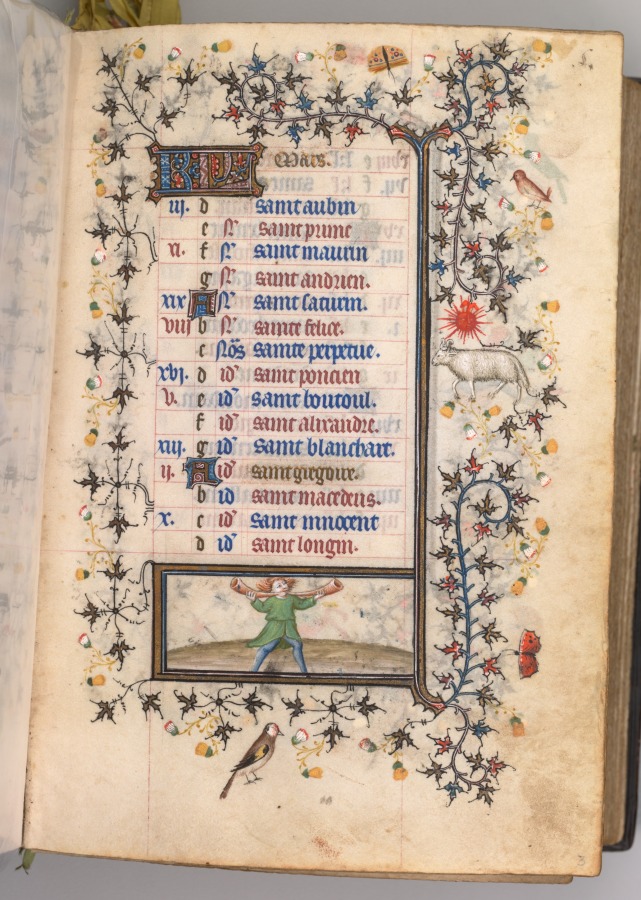 KL Mars.
iii. d saint aubin
e N̄ saint prime
xi. f N̄ saint maurin
g N̄ saint andrien.
xix A N̄ saint saturin.
viii b N̄ sainte felice.
c Nōs sainte perpetue.
xvi. d id' saint poncien
v. e id' saint boutoul.
f id' saint alixandre.
xiii. g id' saint blanchart.
ii. A id' saint gregoire.
b id saint macedens.
x. c id' saint innocent
d id' saint longin.